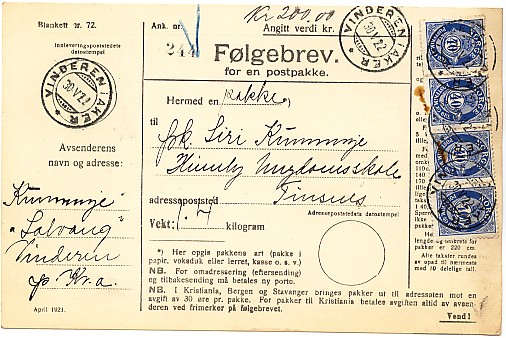 Blankett nr. 72.
Ank. nr.
Kr 200,00
Angitt verdi kr.
Innleveringspoststedets
datostempel
244
VINDEREN I AKER
30 V 22
VINDEREN I AKER
30 V 22
Følgebrev.
for en postpakke.
Hermed en pakke *)
til
frk. Siri Krummnje
Avsenderens
navn og adresse:
adressepoststed
Adressepoststedets datostempel
Vekt: 1.7 kilogram
"Solvang"
Vinderen
p. Kr.a.
pakker er
220 cm.
Alle takster rundes
av opad til nærmeste
med 10 delelige tall.
*) Her opgis pakkens art (pakke i
papir, voksduk eller lerret, kasse o. s. v.)
NB. For omadressering (eftersending)
og tilbakesending må betales ny porto.
NB. I Kristiania, Bergen og Stavanger bringes pakker ut til adressaten mot en
avgift av 30 øre pr. pakke. For pakker til Kristiania betales avgiften altid av avsen-
deren ved frimerker på følgebrevet.
April 1921.
Vend!